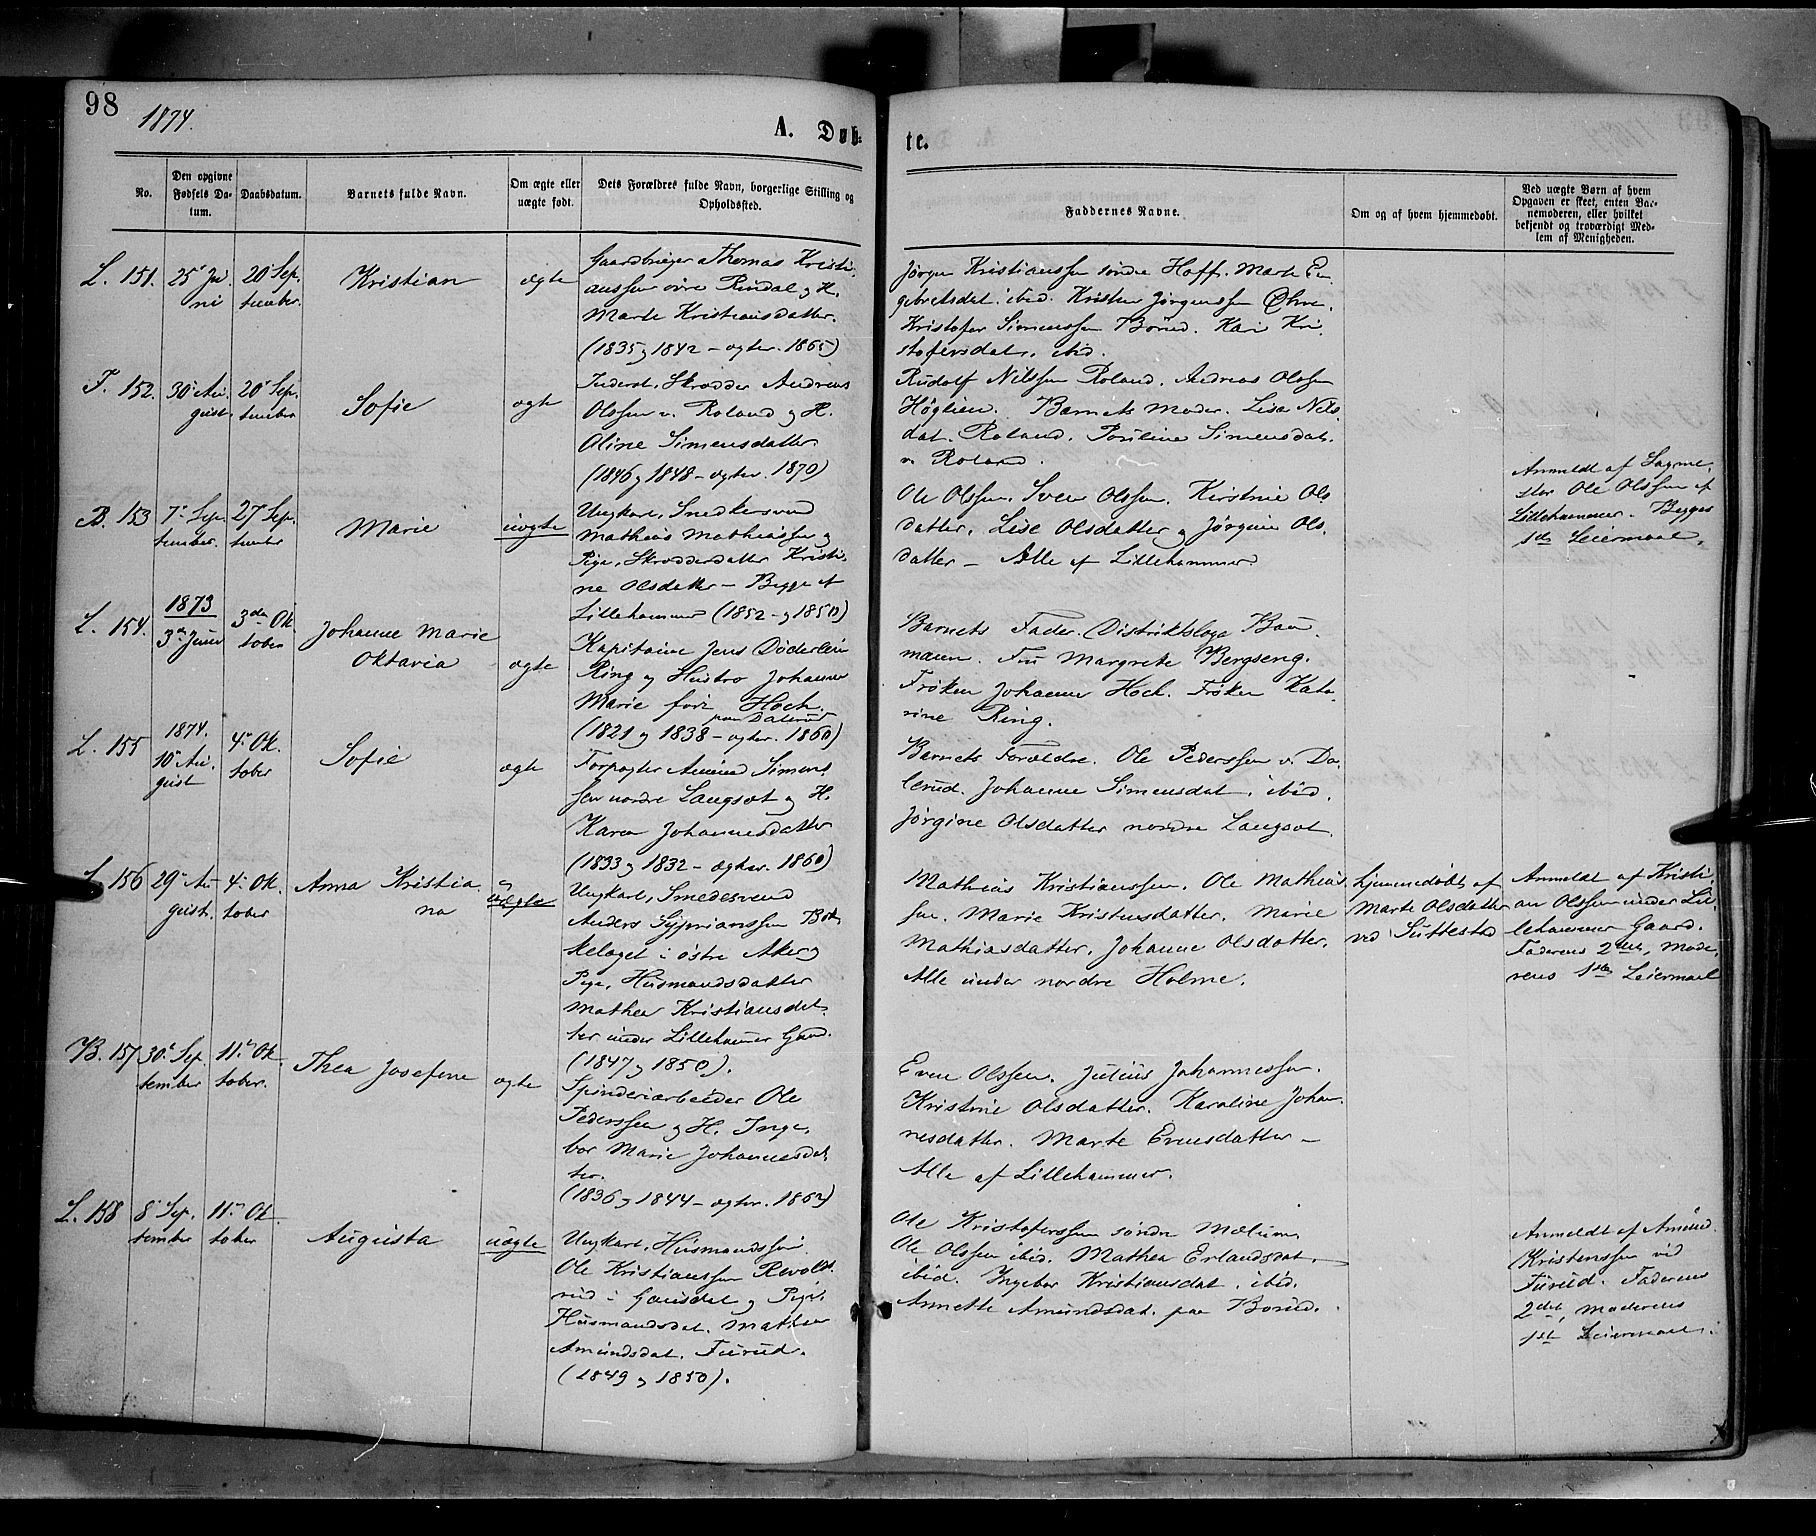 98
1874.
A. Døb-
te.
No.
Den opgivne
Fødsels Da-
tum.
Daabsdatum.
Barnets fulde Navn.
Om ægte eller
uægte født.
Dets Forældres fulde Navn, borgerlige Stilling og
Opholdssted.
Faddernes Navne.
Om og af hvem hjemmedøbt.
Ved uægte Børn af hvem
Opgaven er skeet, enten Bar-
nemoderen, eller hvilket
bekjendt og troværdigt Med-
lem af Menigheden.
L. 151.
25de Ju-
ni
20de Sep-
tember.
Kristian
ægte
Gaardbruger Thomas Kristi-
anssen øvre Rindal og H.
Marte Kristiansdatter.
(1835 og 1842 – ægtev. 1865)
Jørgen Kristianssen søndre Hoff. Marte En-
gebretsdat. ibid. Kristen Jørgenssen Øhre.
Kristofer Simenssen Børud. Kari Kri-
stofersdat. ibid.
F. 152.
30de Au-
gust.
20de Sep-
tember
Sofie
ægte
Inderst, Skrædder Andreas
Olssen v. Roland og H.
Oline Simensdatter
(1846 og 1848 – ægtev. 1870)
Rudolf Nilssen Roland. Andreas Olssen
Høglien. Barnets Moder. Lisa Nils-
dat. Roland. Pauline Simensdat.
v. Roland.
B. 153
7de Sep-
tember.
27de Sep-
tember
Marie
uægte
Ungkarl, Snedkersvend
Mathias Mathiassen og
Pige, Skrædderdatter Kristi-
ne Olsdatter – Begge af
Lillehammer (1852 og 1850)
Ole Olssen. Sven Olssen. Kirstine Ols-
datter, Lise Olsdatter og Jørgine Ols-
datter – Alle af Lillehammer.
Anmeldt af Sagme-
ster Ole Olssen af
Lillehammer. Begges
1ste Leiermaal.
L. 154.
1873
3die Juni
3die Ok-
tober
Johanne Marie
Oktavia
ægte
Kapitaine Jens Døderlein
Ring og Hustro Johanne
Marie født Hoch.
paa Dalerud
(1821 og 1838 – ægtev. 1860)
Barnets Fader. Distriktslæge Bau-
mann. Fru Margrete Bergseng.
Frøken Johanne Hoch. Frøken Kata-
rine Ring.
L. 155
1874.
10de Au-
gust
4de Ok-
tober
Sofie
ægte
Forpagter Amund Simens-
sen nordre Langset og H.
Karen Johannesdatter
(1833 og 1832 – ægtev. 1860)
Barnets Forældre. Ole Pederssen v. Da-
lerud. Johanne Simensdat. ibid.
Jørgine Olsdatter nordre Langset.
L. 156
29de Au-
gust.
4de Ok-
tober
Anna Kristia-
na
uægte
Ungkarl, Smedesvend
Anders Gyprianssen Bek-
kelaget i østre Aker og
Pige, Husmandsdatter
Mathea Kristiansdat-
ter under Lillehammer Gaard.
(1847 og 1850).
Mathias Kristianssen. Ole Mathias-
sen. Marie Kristensdatter. Marie
Mathiasdatter. Johanne Olsdatter.
Alle under nordre Holme.
hjemmedøbt af
Marte Olsdatter
ved Suttestad
Anmeldt af Kristi-
an Olssen under Lil-
lehammer Gaard.
Faderens 2det, Mode-
rens 1ste Leiermaal
B. 157
30de Sep-
tember
11te Ok-
tober.
Thea Josefine
ægte
Spinderiarbeider Ole
Pederssen og H. Inge-
bor Marie Johannesdat-
ter.
(1836 og 1844 – ægtev. 1862)
Even Olssen. Julius Johannessen.
Kristine Olsdatter. Karoline Johan-
nesdatter. Marte Evensdatter –
Alle af Lillehammer.
L. 158
8de Sep-
tember
11te Ok-
tober
Augusta
uægte
Ungkarl, Husmandssøn
Ole Kristianssen Revolds-
rud i Gausdal og Pige,
Husmandsdat. Mathea
Amundsdat. Furud.
(1849 og 1850).
Ole Kristoferssen søndre Mælum.
Ole Olssen ibid. Mathea Erlandsdat.
ibid. Ingebor Kristiansdat. ibid.
Annette Amundsdat. paa Børud.
Anmeldt af Amund
Kristenssen ved
Furud. Faderens
2det, Moderens
1ste Leiermaal.